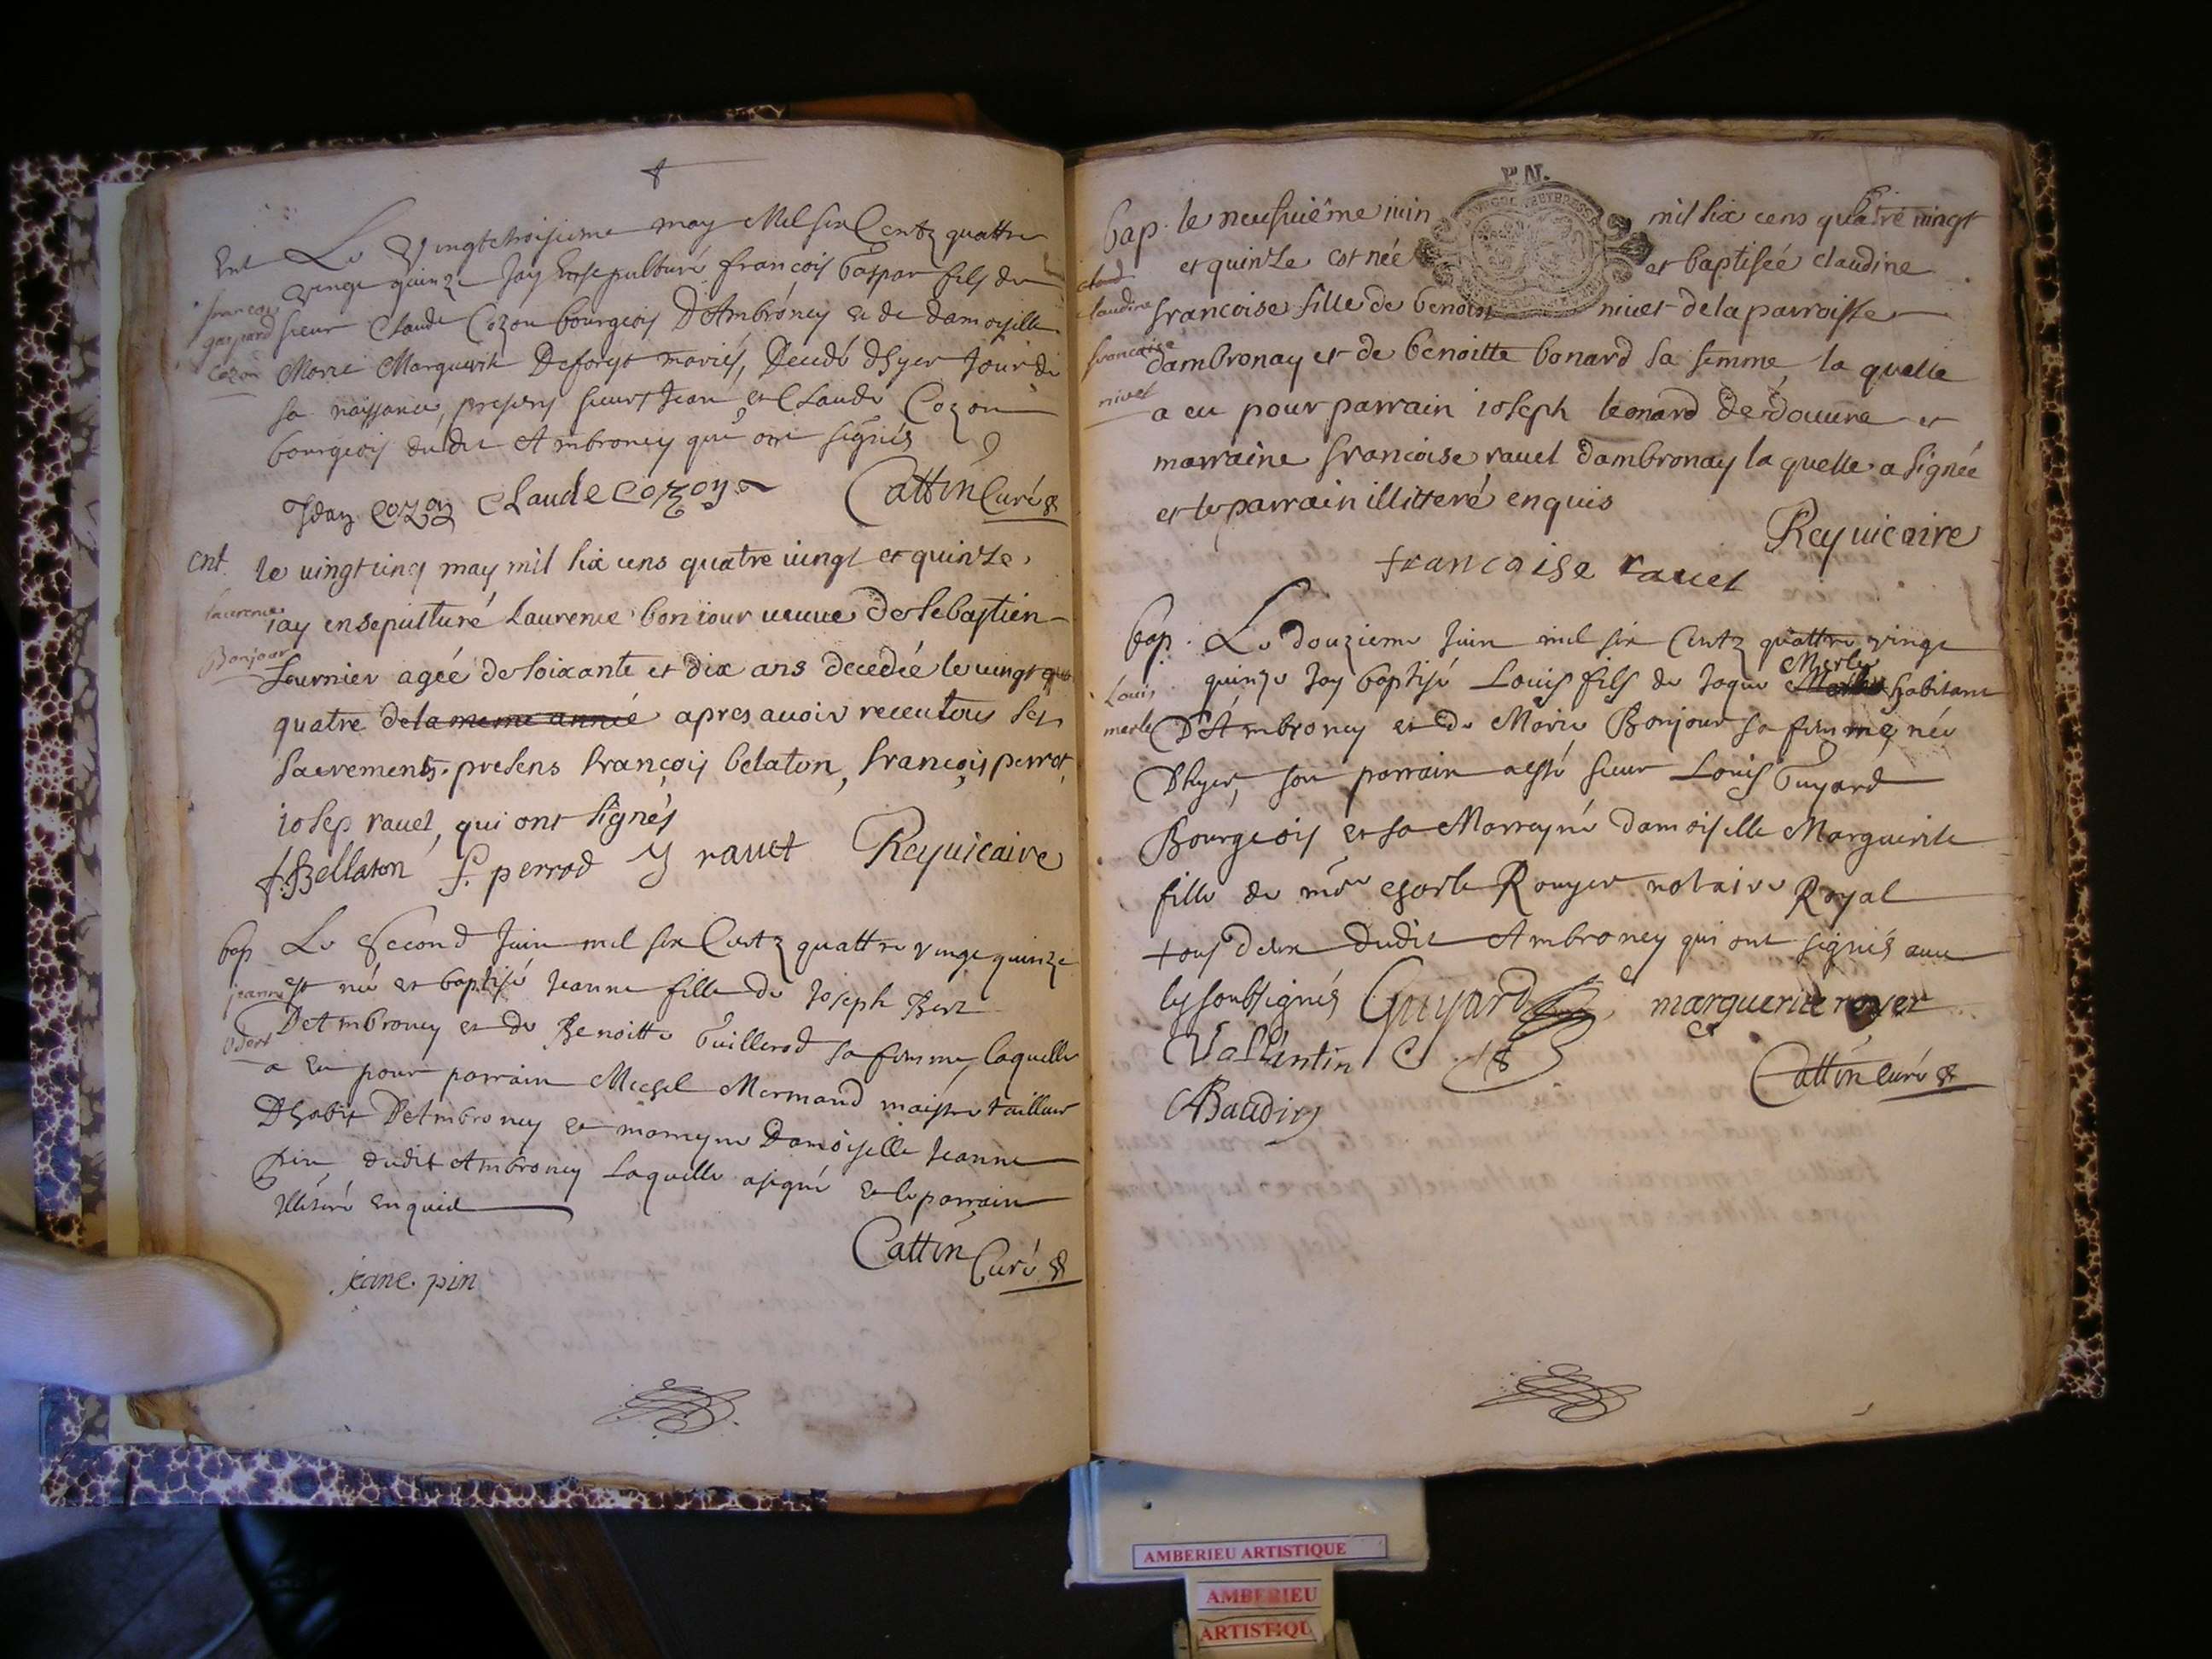 Ent Le Vingtchoisieme may Mil six Centz quattre
vingt quinze Jay Ensepulturé francois Gaspar fils de
francois gaspard cozon
sieur Claude Cozon bourgeois D'Ambroney et de damoiselle
Marie Marguerite Deforest mariés, Decedé dhyer Jour de
sa naissance, presens sieurs Jean et Claude Cozon
bourgeois dudit Ambroney qui ont signés
Jean cozon Claude cozon Cattin Curé
ent. le uingt cinq may mil six cens quatre uingt et quinze
laurence Bonjour
iay ensepulturé Laurence boniour ueuue de Sebastien
fournier agée de soixante et dix ans decedée le uingt
quatre de la meme année apres auoir receu tous ses
sacrements. presens françois belaton, françois perrot,
iosep rauet, qui ont signés
f. Bellaton f. perrod J rauet Rey uicaire
bap Le Second Juin mil six Centz quattre vingt quinze
jeanne
est née et baptisé Jeanne fille de Joseph
D'Ambroney et de Benoitte Guillerod sa femme, laquelle
a eu pour parrain Michel Mermand maistre tailleur
Dhabit D'Ambroney et marreyne Damoiselle Jeanne
Pin dudit Ambroney Laquelle a signé et le parrain
illiteré enquis
Cattin Curé
jeane. pin
P. N.
bap. le neufuiême iuin mil six cens quatre uingt
et quinze est née et baptisée claudine
claudine francoise niuet
francoise fille de benoist niuet de la parroisse
dambronay et de benoitte bonard sa femme, la quelle
a eu pour parrain ioseph leonard de douure et
marraine francoise rauet dambronay la quelle a signée
et le parrain illitteré enquis
Rey uicaire
francoise rauet
bap. Le douzieme Juin mil six Centz quattre vingt
Louis merle
quinze Jay baptisé Louis fils de Jaque Merle habitant
D'Ambroney et de Marie Bonjour sa femme, née
Dhyer, son parrain a esté sieur Louis Guyard
Bourgeois et sa Marreyne damoiselle Marguerite
fille de charle Rouyer notaire Royal
tous deux dudit Ambroney qui ont signés auec
les soubsignés Guyard marguerite royer
Vallantin
Cattin Curé
Baudin
AMBERIEU ARTISTIQUE
AMBERIEU
ARTISTIQU